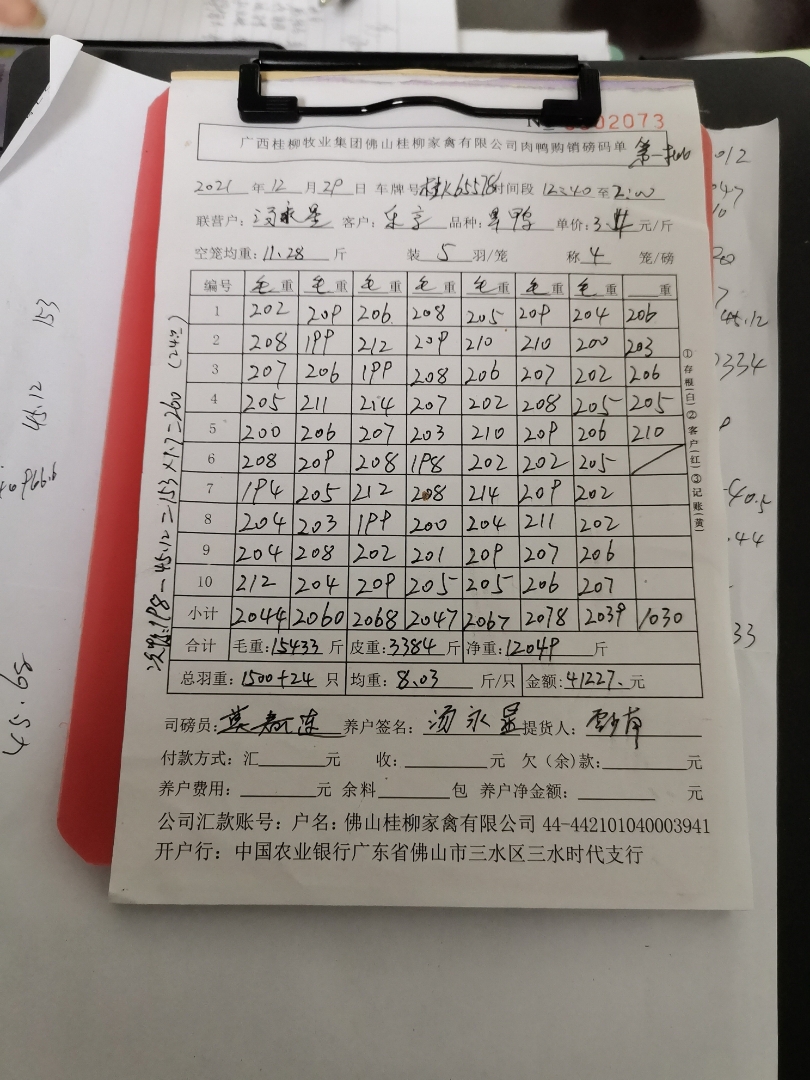 № 0002073
广西桂柳牧业集团佛山桂柳家禽有限公司肉鸭购销磅码单
2021 年 12 月 29 日 车牌号 时间段 12:40 至 2:00
联营户: 客户: 乐言 品种: 单价: 3.4 元/斤
空笼均重: 11.28 斤 装 5 羽/笼 称 4 笼/磅
编号 毛重 毛重 毛重 毛重 毛重 毛重 毛重 重
1 202 209 206 208 205 209 204 206
2 208 199 212 209 210 210 200 203
3 207 206 199 208 206 207 202 206
4 205 211 214 207 202 208 205 205
5 200 206 207 203 210 209 206 210
6 208 209 208 198 202 202 205
7 194 205 212 208 214 209 202
8 204 203 199 200 204 211 202
9 204 208 202 201 209 207 206
10 212 204 209 205 205 206 207
小计 2044 2060 2068 2047 2067 2078 2039 1030
合计 毛重: 15433 斤 皮重: 3384 斤 净重: 12049 斤
总羽重: 1500+24 只 均重: 8.03 斤/只 金额: 41227. 元
司磅员: 养户签名: 汤永 提货人:
付款方式: 汇 元 收: 元 欠(余)款: 元
养户费用: 元 余料 包 养户净金额: 元
公司汇款账号: 户名: 佛山桂柳家禽有限公司 44-442101040003941
开户行: 中国农业银行广东省佛山市三水区三水时代支行
①存根(白)②客户(红)③记账(黄)
198-45.12=153×1.7=260 (24只)
153
45.12
45.68
012
45.12
2334
40.5
.44
33